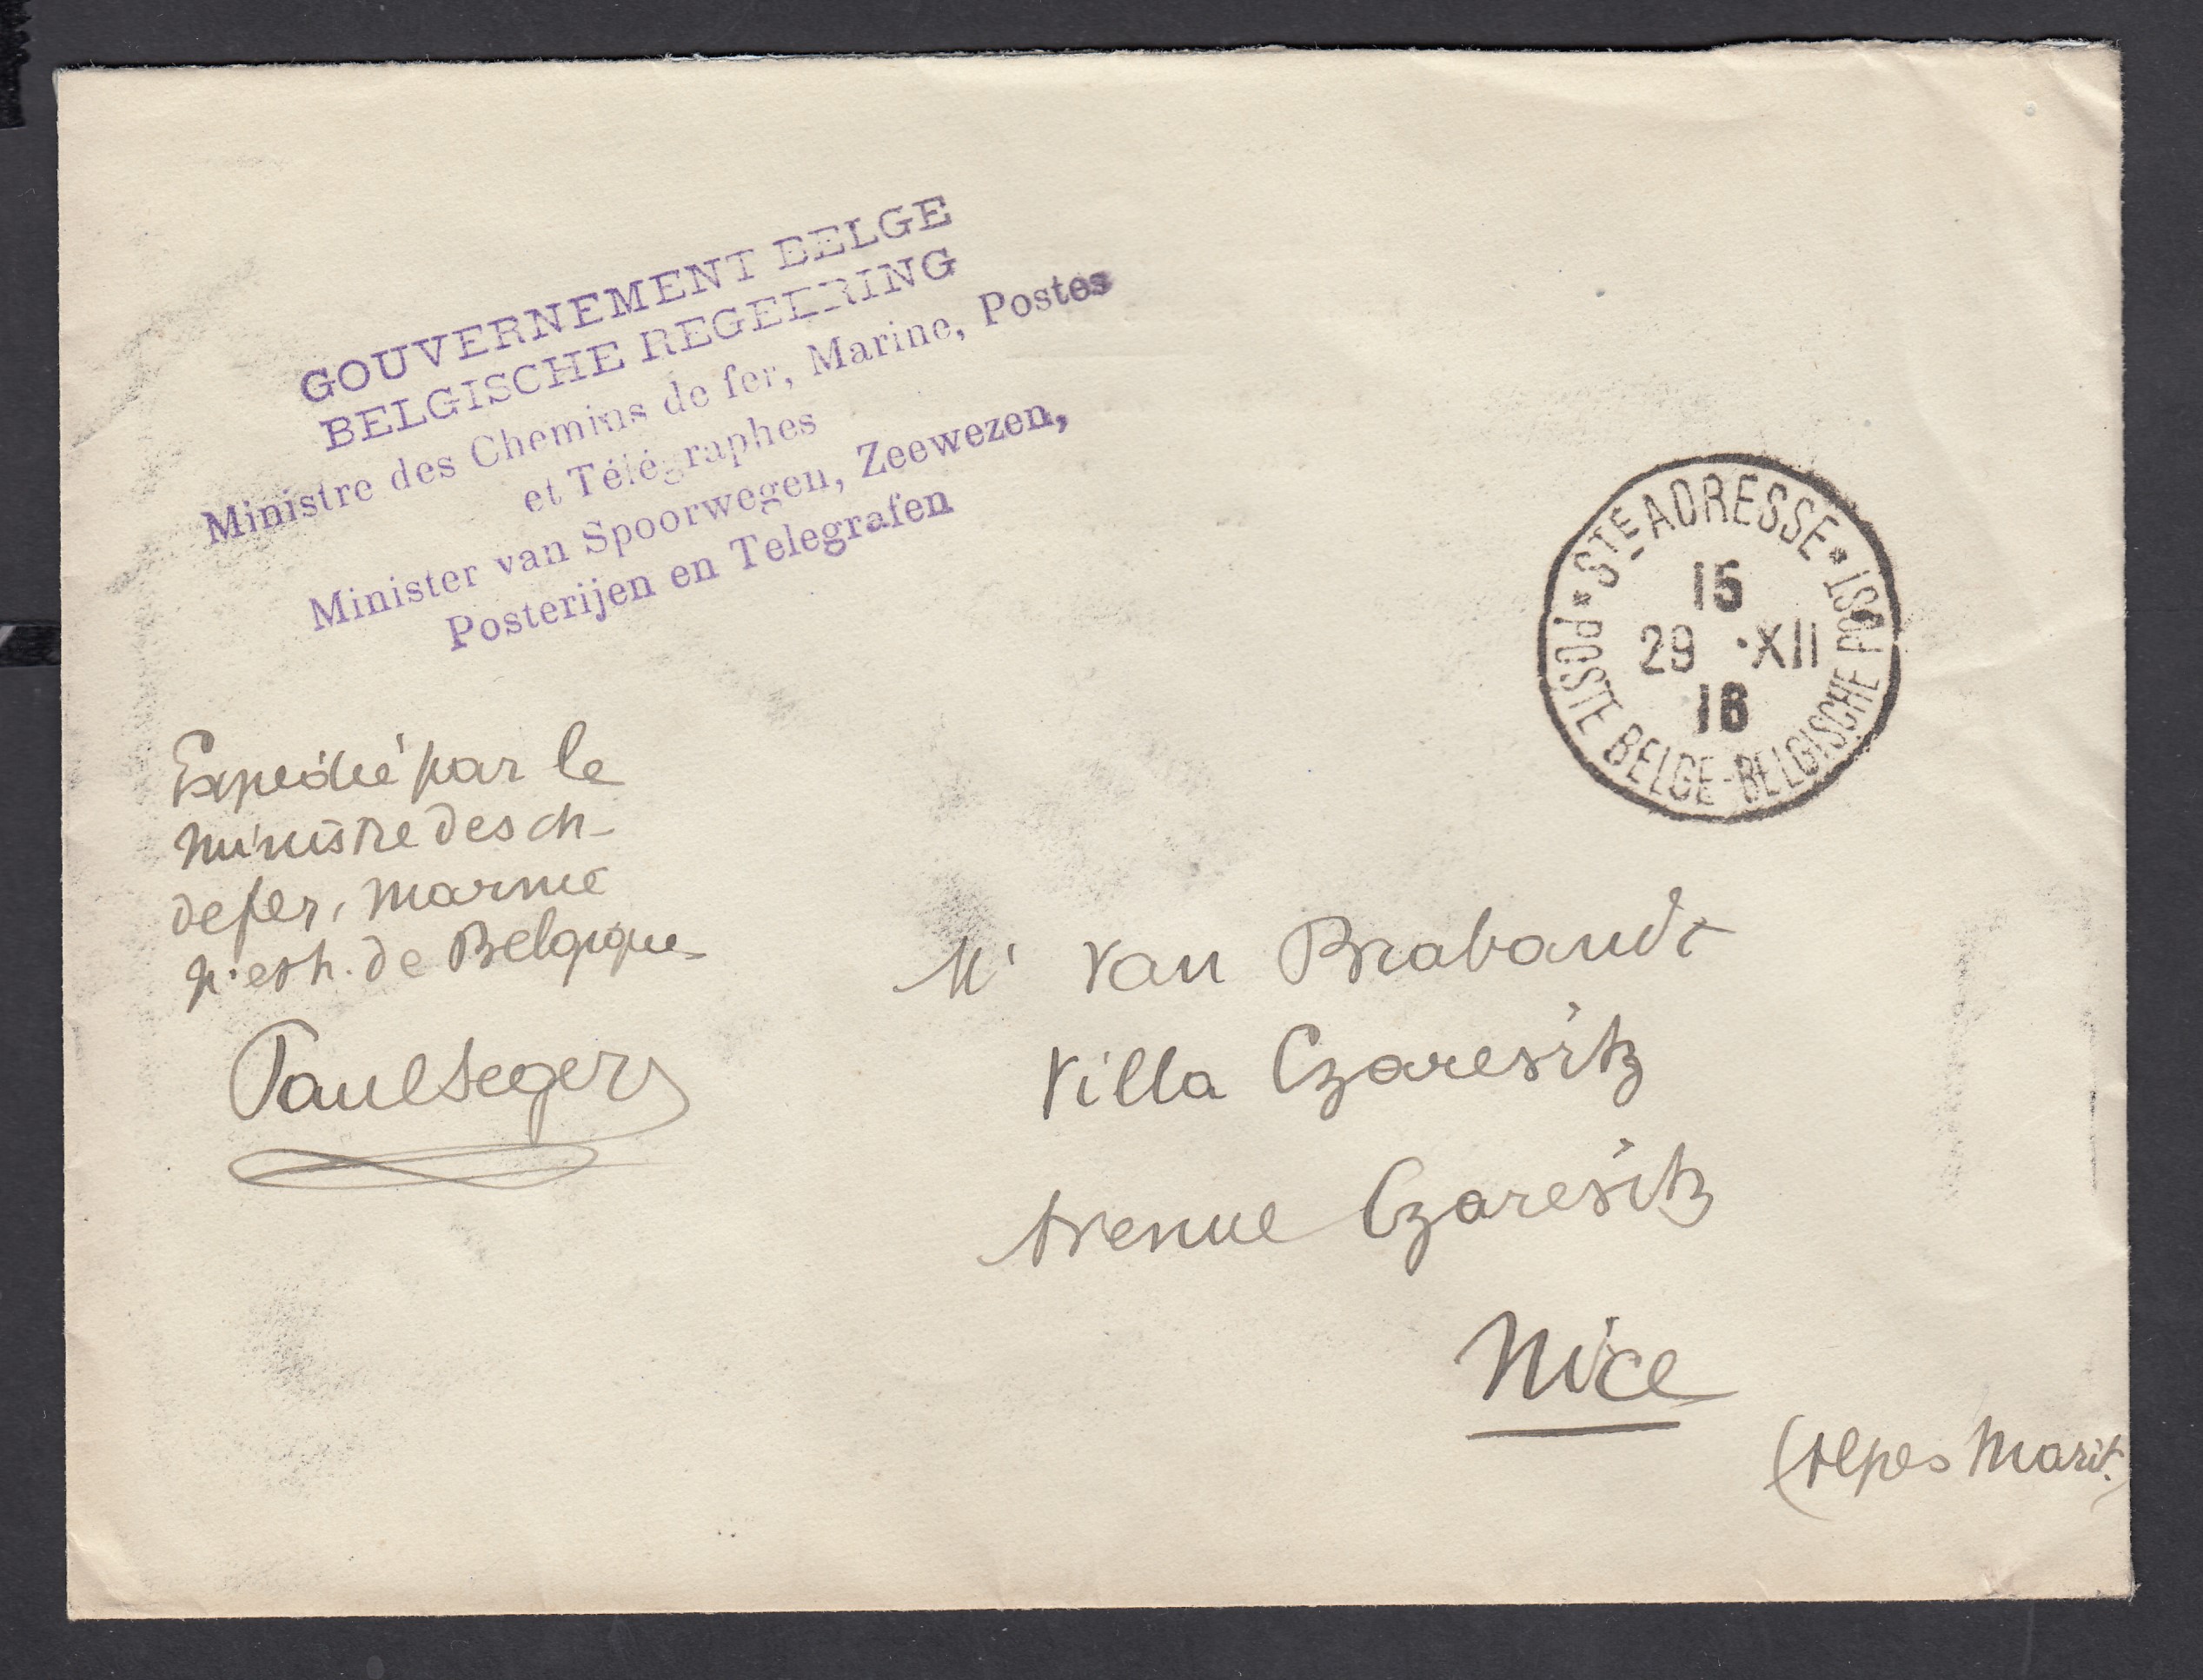 GOUVERNEMENT BELGE
BELGISCHE REGEERING
Ministre des Chemins de fer, Marine, Postes
et Télégraphes
Minister van Spoorwegen, Zeewezen,
Posterijen en Telegrafen
* STE ADRESSE *
POSTE BELGE - BELGISCHE POST
15
29 · XII
16
Expédié par le
Ministre des ch-
de fer, marine
p. et t. de Belgique
Paul Segers
Mr Van Brabandt
Villa Czaresitz
Avenue Czaresitz
Nice
(Alpes Marit.)